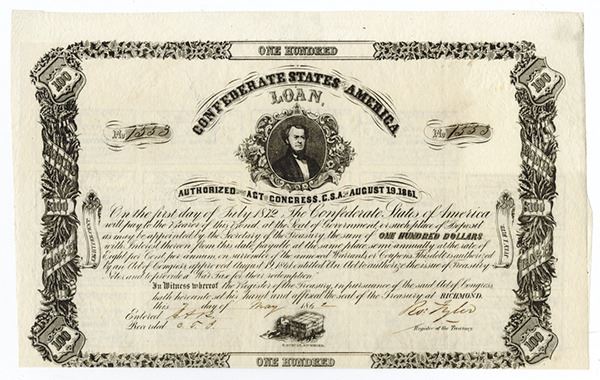 ONE HUNDRED
100
100
CONFEDERATE STATES AMERICA
LOAN,
No 1553
No 1553
AUTHORIZED ACT CONGRESS, C.S.A. AUGUST 19, 1861.
On the first day of July 1872, The Confederate States of America
will pay to the Bearer of this Bond at the Seat of Government, or such place of Deposit
as may be appointed by the Secretary of the Treasury, the sum of ONE HUNDRED DOLLARS
with Interest thereon from this date, payable at the same place semi-annually at the rate of
Eight per Cent per annum on surrender of the annexed Warrants or Coupons. This debt is authorized
by an Act of Congress, approved August 19, 1861, entitled An Act to authorize the issue of Treasury
Notes and War Tax for their redemption.
$100
$100
In Witness whereof the Register of the Treasury, in pursuance of the said Act of Congress
hath hereunto set his hand and affixed the seal of the Treasury at RICHMOND.
This 2 day of May 1862
Entered
Recorded
Ro: Tyler
Register of the Treasury
100
100
ONE HUNDRED